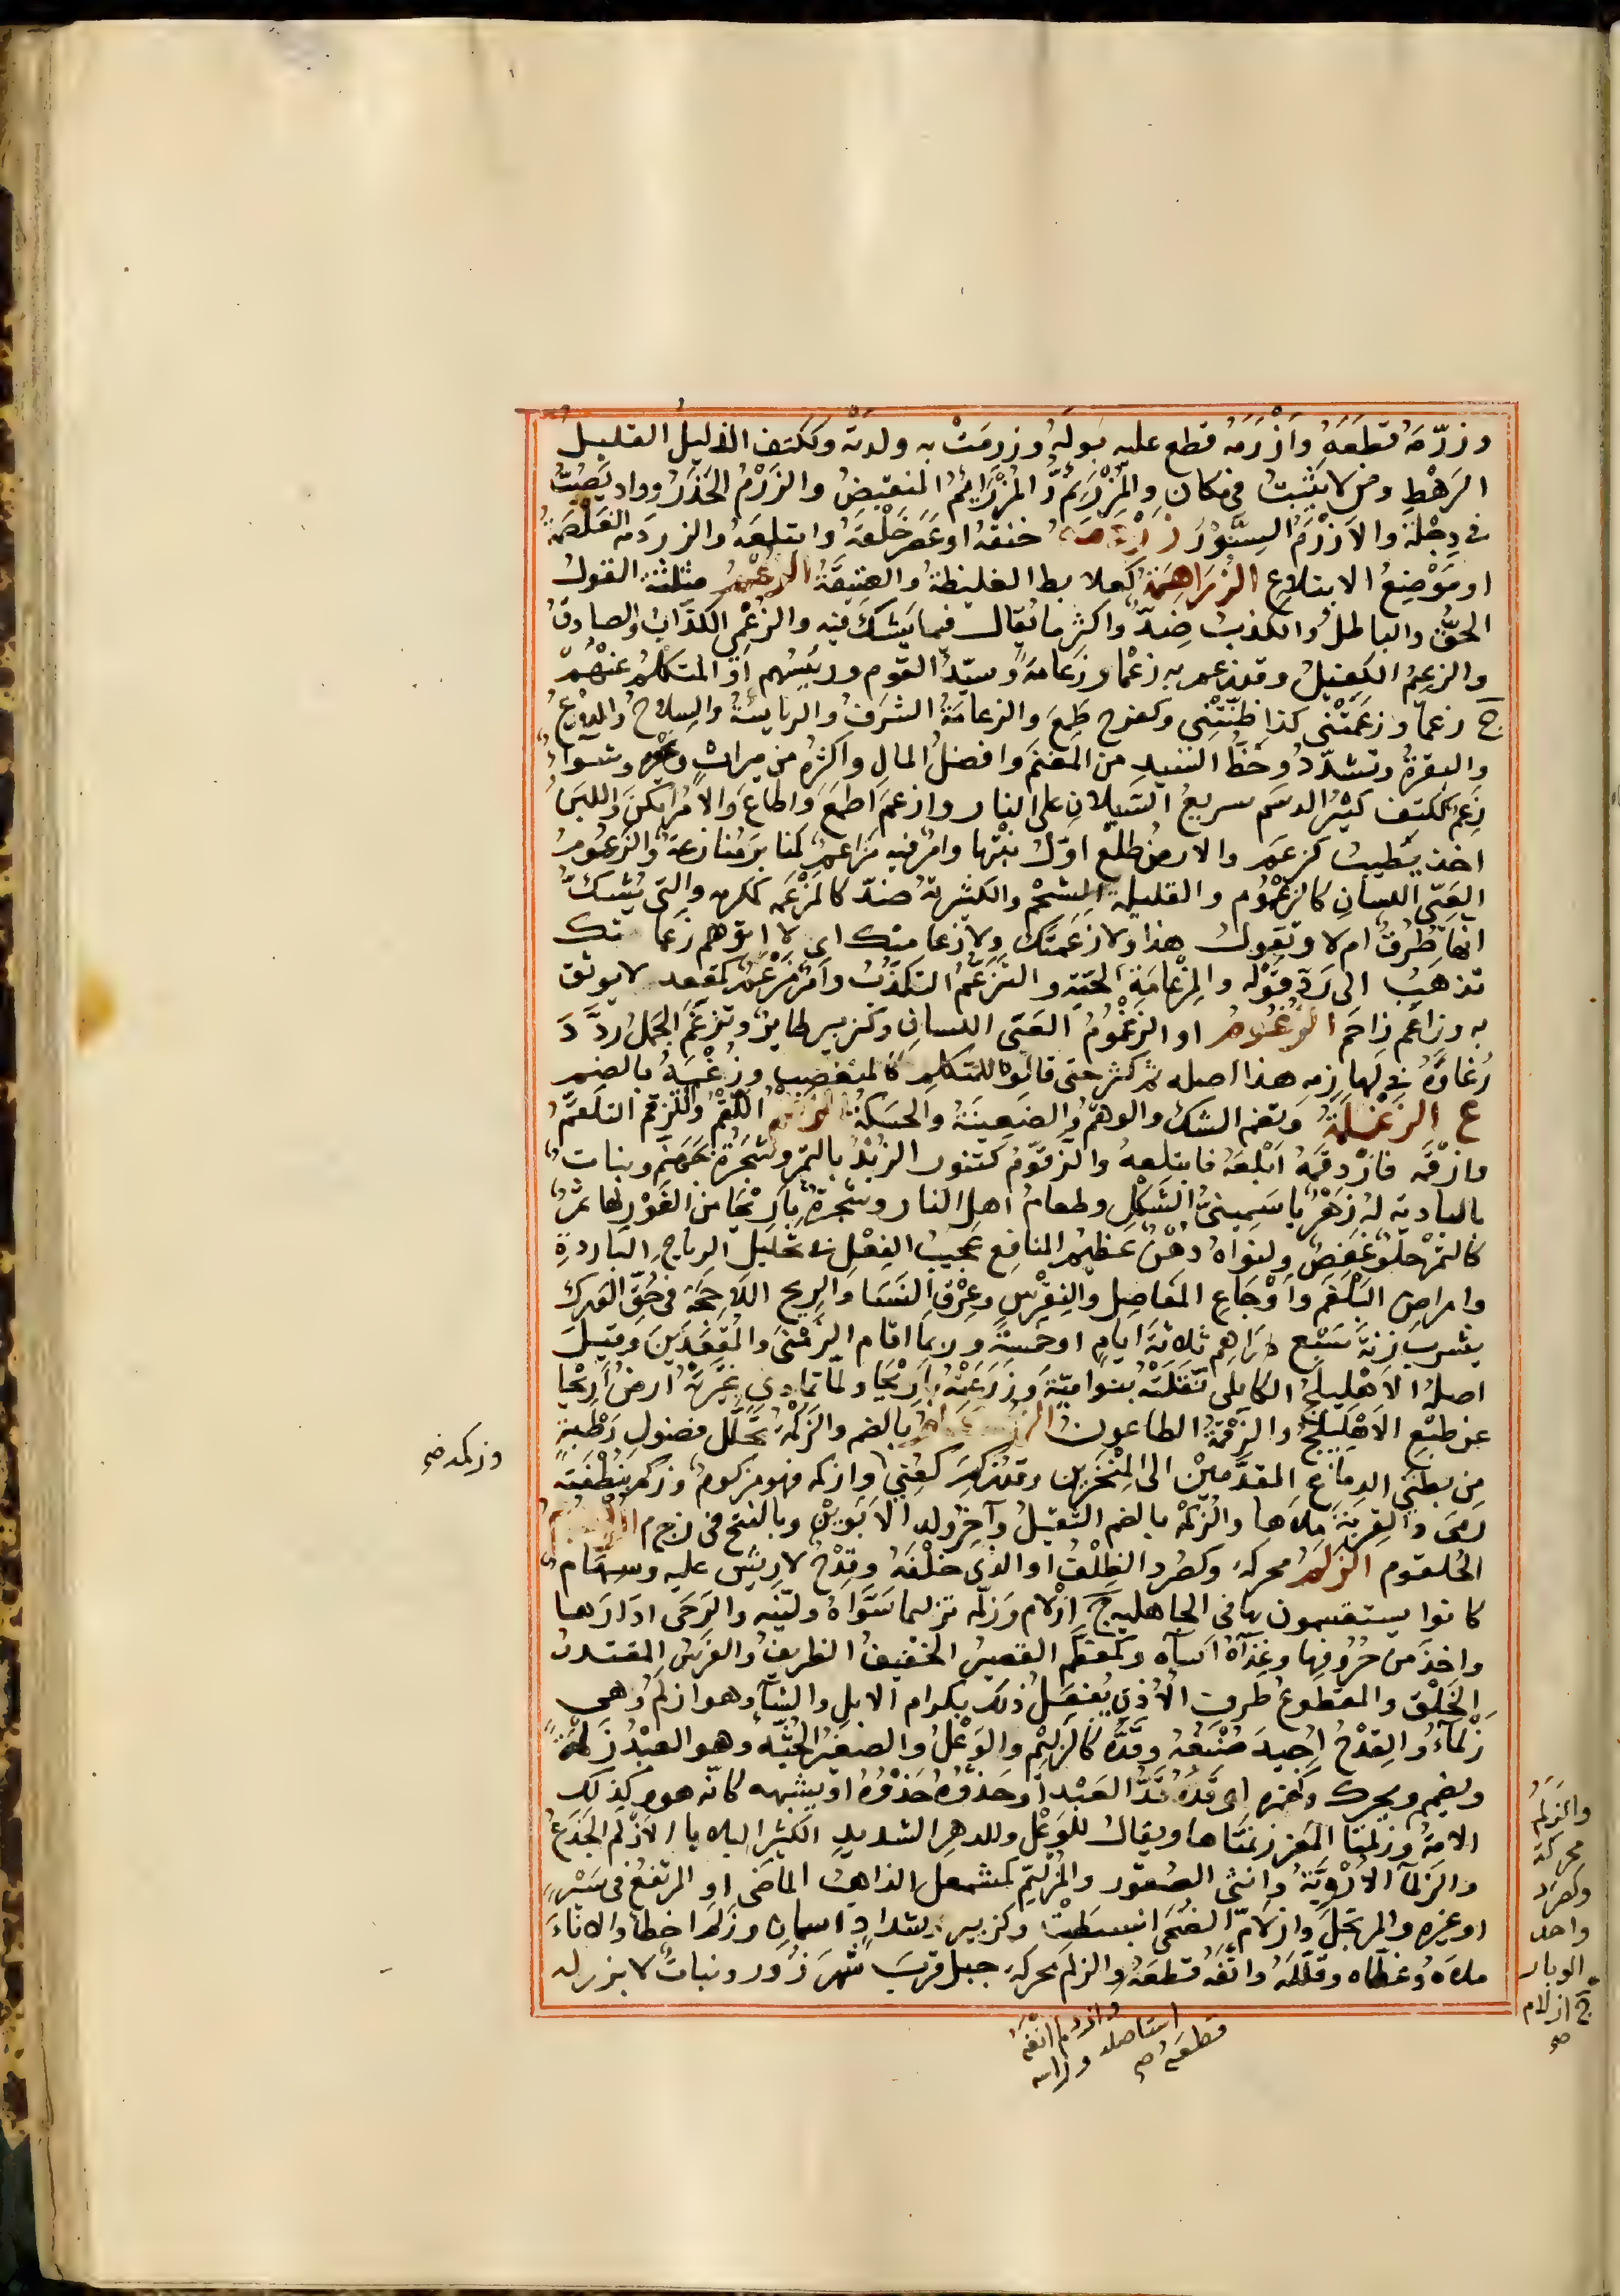 وزرّمه قطعه وأزرمه قطع عليه بوله وزرمت به ولدته وككتف الذليل القليل
الرهط ومن لا يثبت في مكان والمزرئم والمزرايم المنقبض والزرم الحذر وواد يصب
في دجلة والازرم السنور زردمه خنقه او عصر حلقه وابتلعه والزردمه الغلصمة
او موضع الابتلاع الزراهمة كعلابط الغليظة والعتيقة الزعم مثلثة القول
الحق والباطل والكذب ضد واكثر ما يقال فيما يشك فيه والزعمي الكذاب والصادق
والزعيم الكفيل وقد زعم به زعما وزعامة وسيد القوم ورئيسهم او المتكلم عنهم
ج زعما وزعمتني كذا ظننتني وكفرح طمع والزعامة الشرف والرياسة والسلاح والدرع
والبقرة وتشدد وحظ السيد من المغنم وافضل المال واكثره من ميراث وغيره وشواء
زعم ككتف كثير الدسم سريع السيلان على النار وازعم اطمع واطاع والامر امكن واللبن
اخذ يطيب كزعم والارض طلع اول نبتها وامر فيه مزاعم كمنابر منازعة والزعوم
العيي اللسان كالزعموم والقليلة الشحم والكثيرته ضد كالمزعمه كمكرمه والتي يشك
انها طرق ام لا وتقول هذا ولا زعمتك ولا زعماتك اي لا اتوهم زعماتك
تذهب الى رد قوله والمزعامة الحية والتزعم التكذب وامر مزعم كمقعد لا يوثق
به وزاعم زاحم الزغموم او الزغموم العي اللسان وكزبير طاير وتزغم الجمل ردد
رغاءه في لهازمه هذا اصله ثم كثر حتى قالوه للمتكلم كالمتغضب وزغمه بالضم
ع الزغلمة وتضم الشك والوهم والضغينة والحسكة الزقم اللقم والتزقم التلقم
وازقمه فازدقمه ابلعه فابتلعه والزقوم كتنور الزبد بالتمر وشجرة بجهنم ونبات
بالبادية له زهر ياسميني الشكل وطعام اهل النار وشجرة باريحا من الغور لها ثمر
كالتمر حلو عفص ولنواه دهن عظيم المنافع عجيب الفعل في تحليل الرياح الباردة
وامراض البلغم واوجاع المفاصل والنقرس وعرق النسا والريح اللاحجة في حق الورك
يشرب زنة سبع دراهم ثلاثة ايام او خمسة وربما اقام الزمنى والمقعدين وقيل
اصله الاهليلج الكابلي نقلته بنو امية وزرعته باريحا ولما تمادى غيرته ارض اريحا
عن طبع الاهليلج والزقمة الطاعون الزكام بالضم والزكمة تحلل فضول رطبة
من بطني الدماغ المقدمين الى المنخرين وقد زكم كعني وازكمه فهو مزكوم وزكم بنطفته
رمى والقربة ملاها والزكمة بالضم الثقيل وآخر ولد الابوين وبالفتح في زجم
الحلقوم الزلم محركة وكصرد الظلف او الذي خلفه وقدح لا ريش عليه وسهام
كانوا يستقسمون بها في الجاهلية ج ازلام وزلمه تزليما سواه ولينه والرحى ادارها
واخذ من حروفها وغذاه اساءه وكمعظم القصير الخفيف الظريف والفرس المقتدر
الخلق والمقطوع طرف الاذن يفعل ذلك بكرام الابل والشاء وهو ازلم وهي
زلماء والقدح اجيد صنعه وقده كالزليم والوعل والصغير الجثة وهو العبد زلمة
ويضم ويحرك وكهمزة اي قده قد العبد او حذوه حذوه او يشبهه كانه هو وكذلك
الامة وزلمتا المعز زنمتاها ويقال للوعل وللدهر الشديد الكثير البلايا الازلم الجذع
والزلماء الاروية وانثى الصقور والمزلئم كمشمعل الذاهب الماضي او المرتفع في سير
او غيره والمرتحل وازلام الضحى انبسطت وكزبير وشداد اسمان وزلم اخطا والاناء
ملاه وعطاه وقلله وانفه قطعه والزلم محركة جبل قرب شهرزور ونبات لا بزر له
وزكمه صح
والزلم
محركة
وكصرد
واحد
الوبار
ج ازلام
صح
وازدلم انفه
استاصله وراسه
قطعه صح